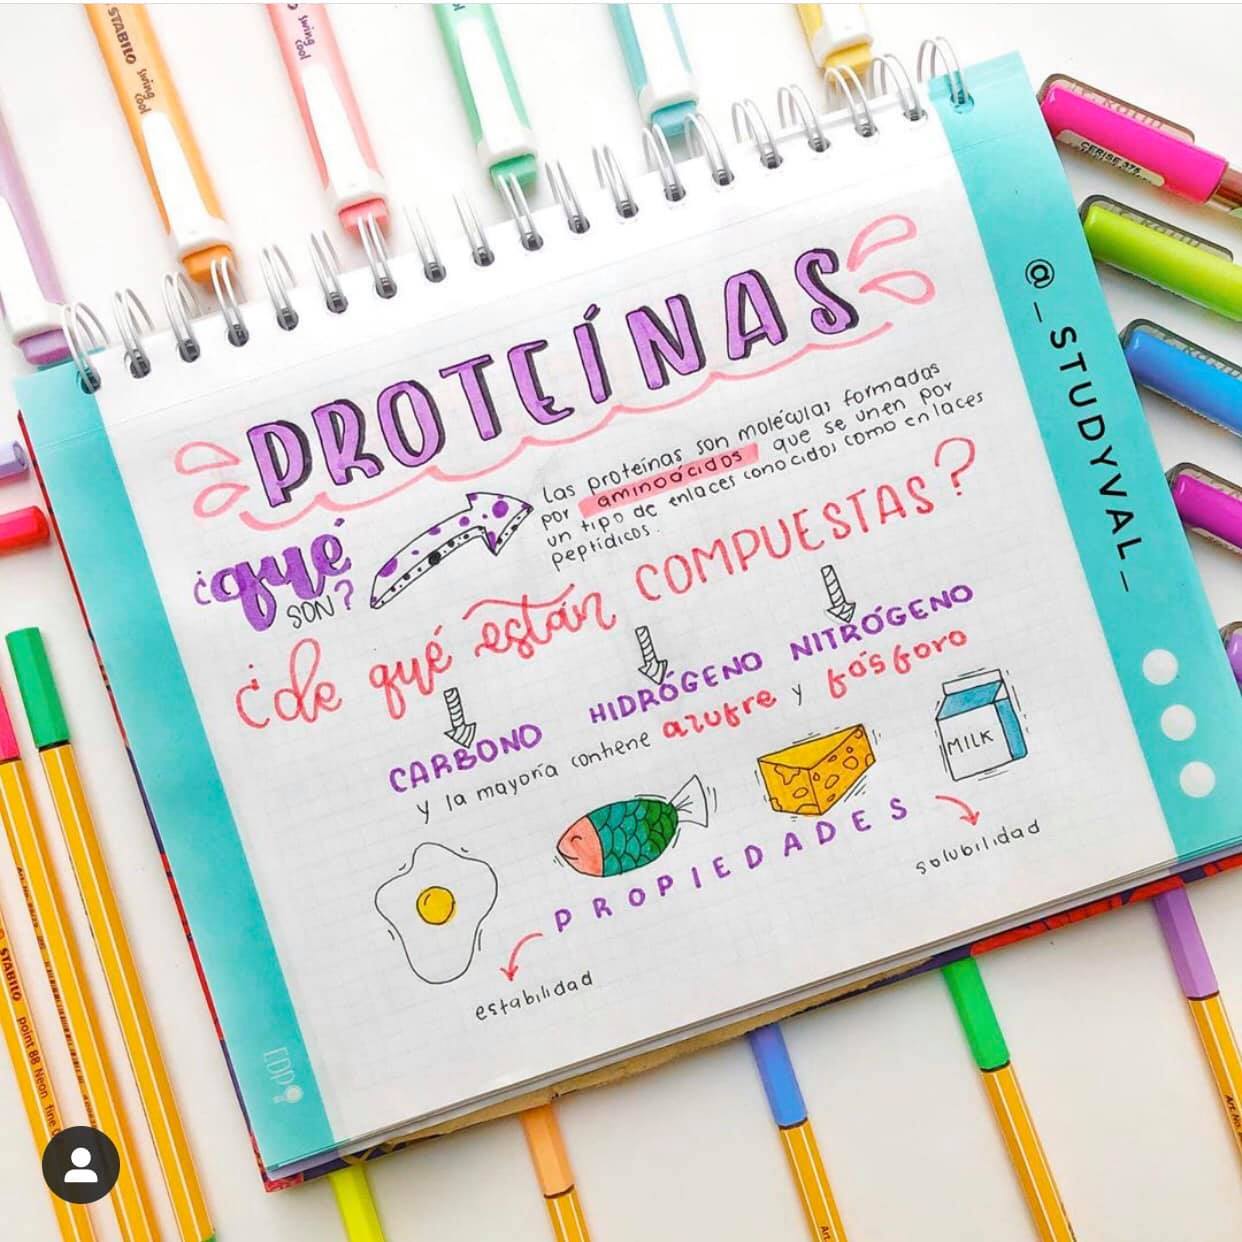 STABILO swing cool
swing cool
CERISE 375
@_STUDYVAL_
PROTEÍNAS
¿qué SON?
Las proteínas son moléculas formadas
por aminoácidos que se unen por
un tipo de enlaces conocidos como enlaces
peptídicos.
¿de qué están COMPUESTAS?
CARBONO HIDRÓGENO NITRÓGENO
y la mayoría contiene azufre y fósforo
MILK
PROPIEDADES
estabilidad
solubilidad
EDP
STABILO point 88 Neon fine